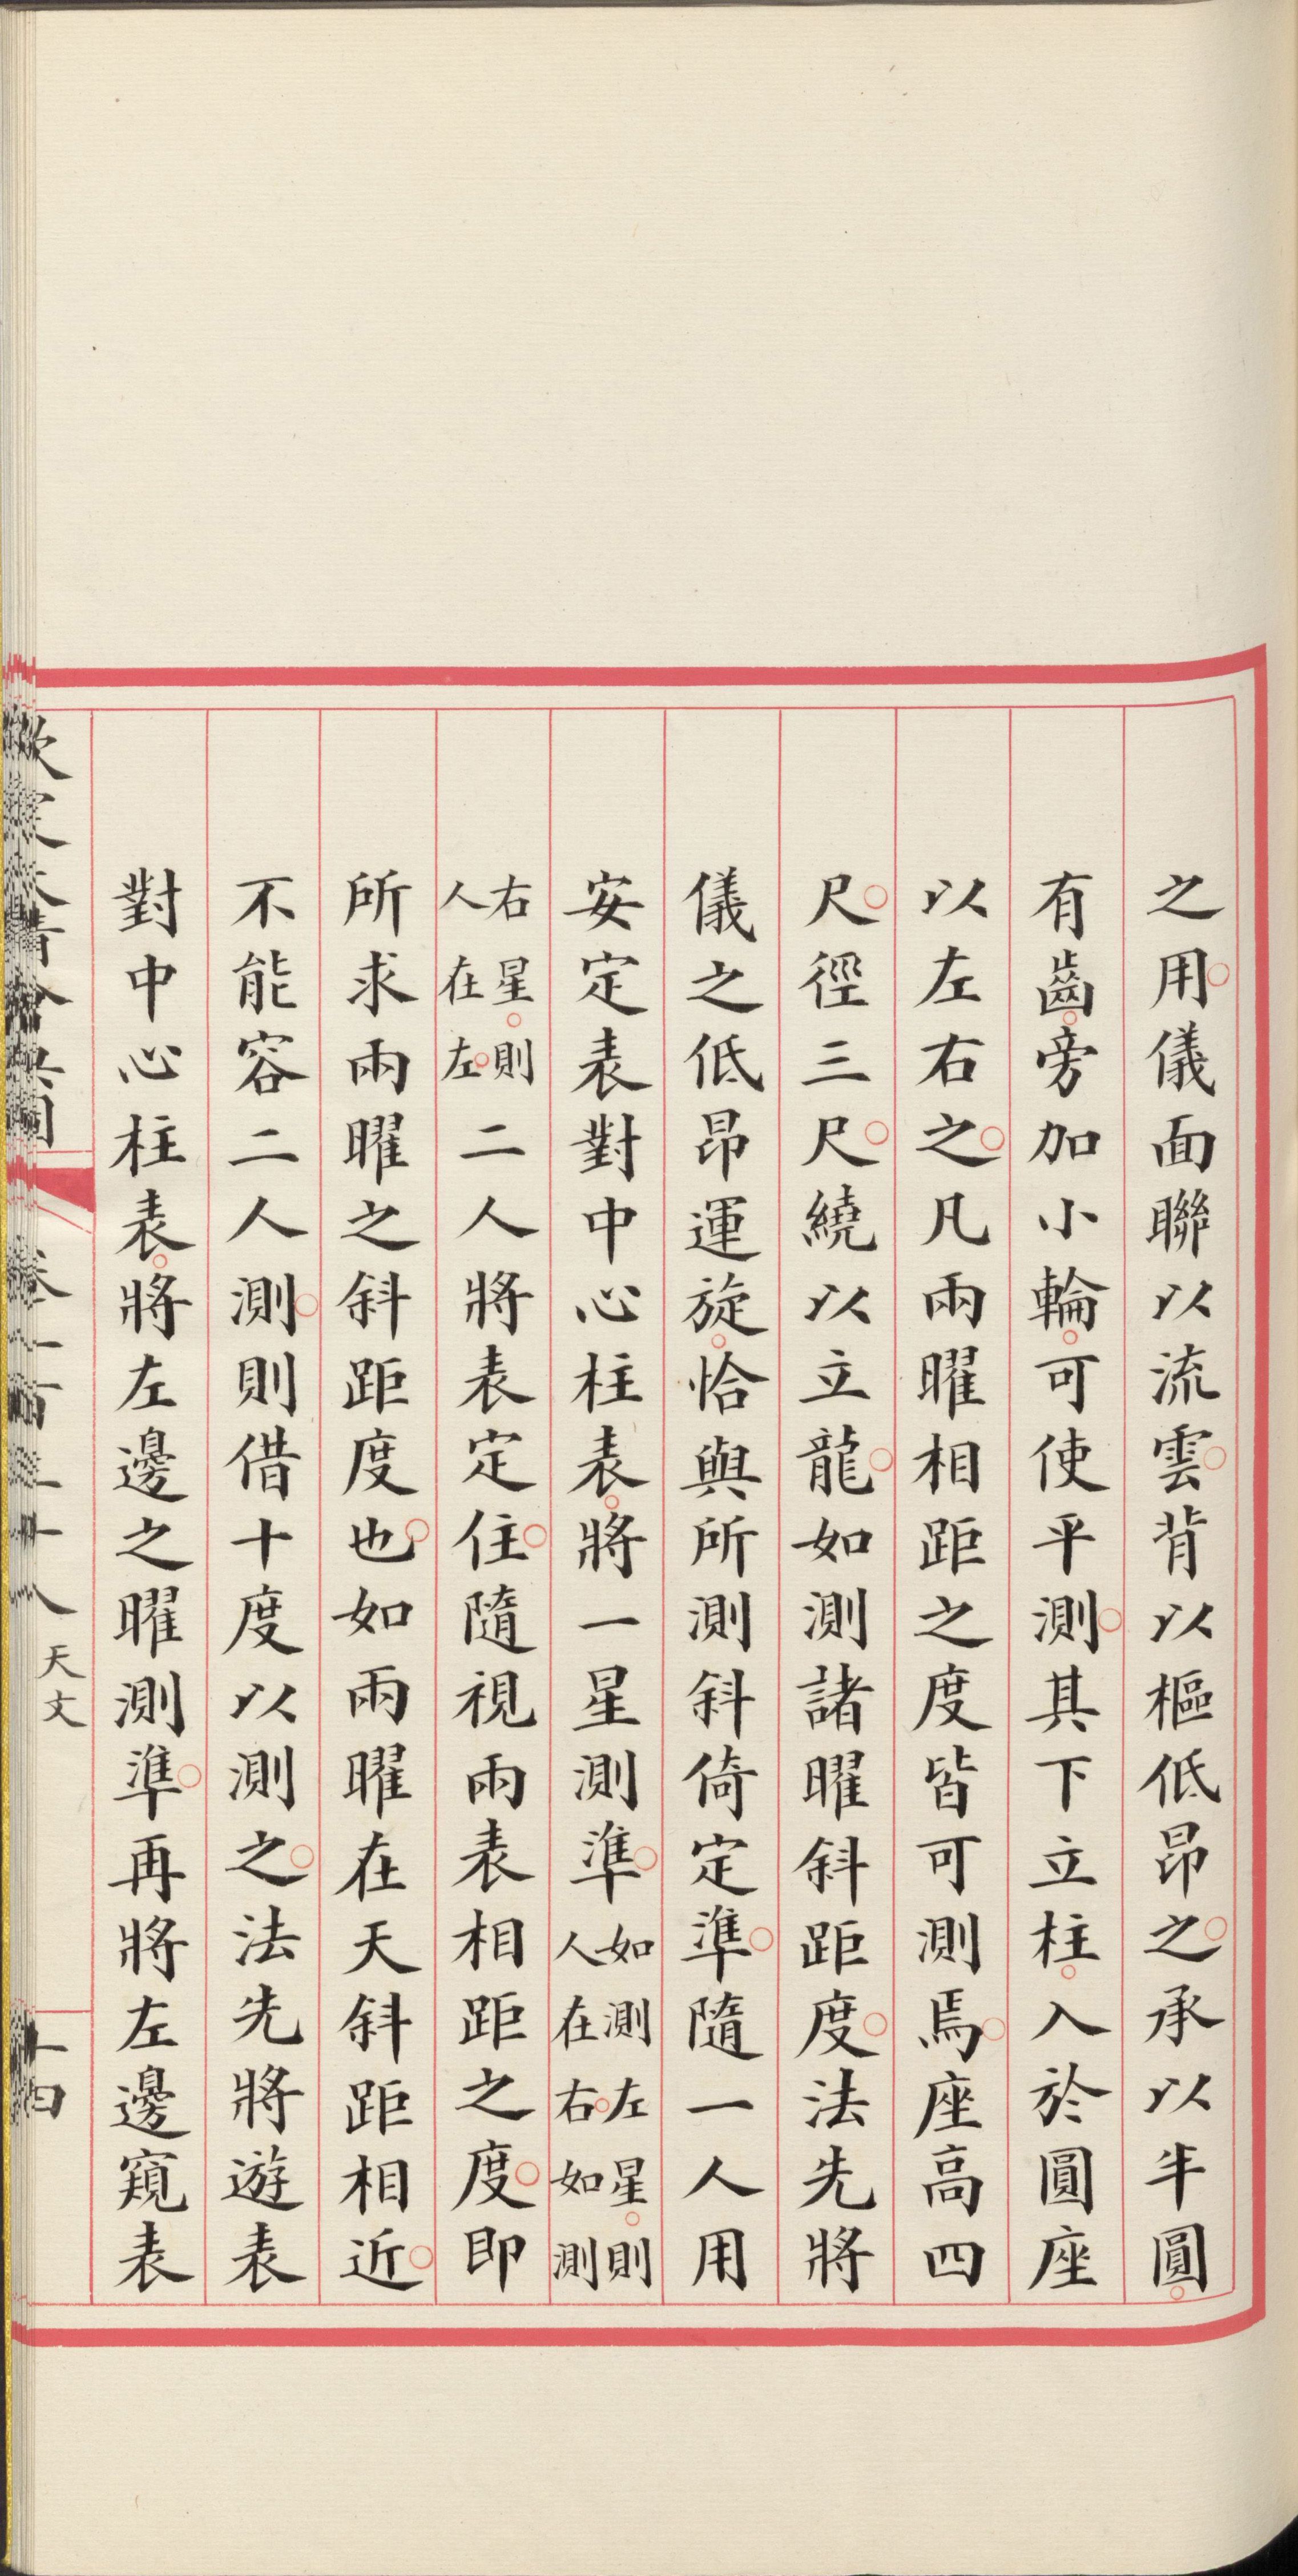 之用。儀面聯以流雲。背以樞低昂之。承以半圓。
有齒。旁加小輪。可使平測。其下立柱。入於圓座
以左右之。凡兩曜相距之度皆可測焉。座高四
尺。徑三尺。繞以立龍。如測諸曜斜距度。法先將
儀之低昂運旋。恰與所測斜倚定準。隨一人用
安定表對中心柱表。將一星測準。如測左星。則
人在右。如測
右星。則
人在左。二人將表定住。隨視兩表相距之度。即
所求兩曜之斜距度也。如兩曜在天斜距相近。
不能容二人測。則借十度以測之。法先將遊表
對中心柱表。將左邊之曜測準。再將左邊窺表
欽定大清會典圖
卷一百三十八
天文
十四